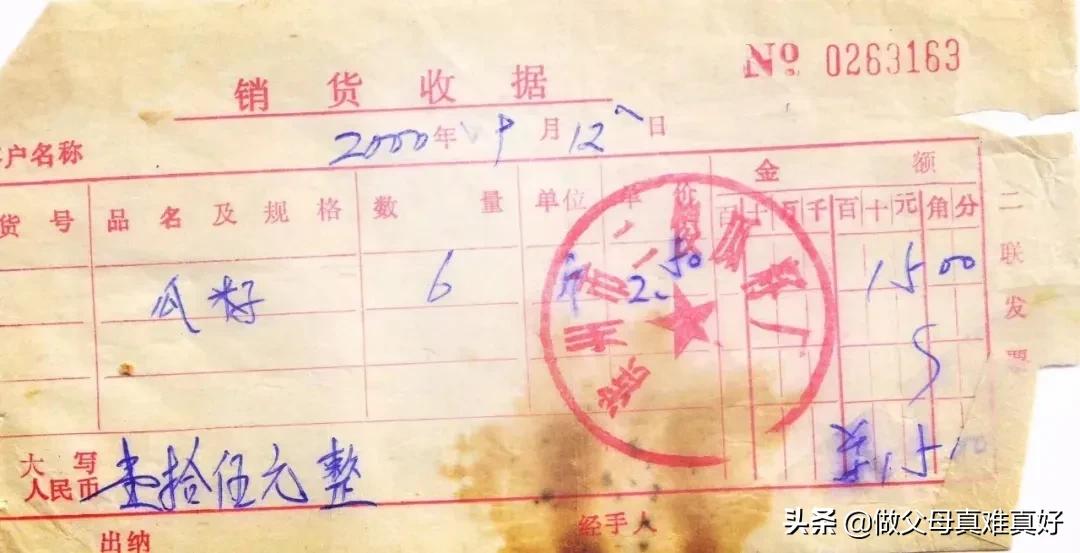 № 0263163
销货收据
户名称 2000年 9月12日
金额
货号 品名及规格 数量 单位 单价 百十万千百十元角分
瓜籽 6 斤 2.50 1500
二联发票
大写
人民币 壹拾伍元整 1500
出纳 经手人
头条 @做父母真难真好